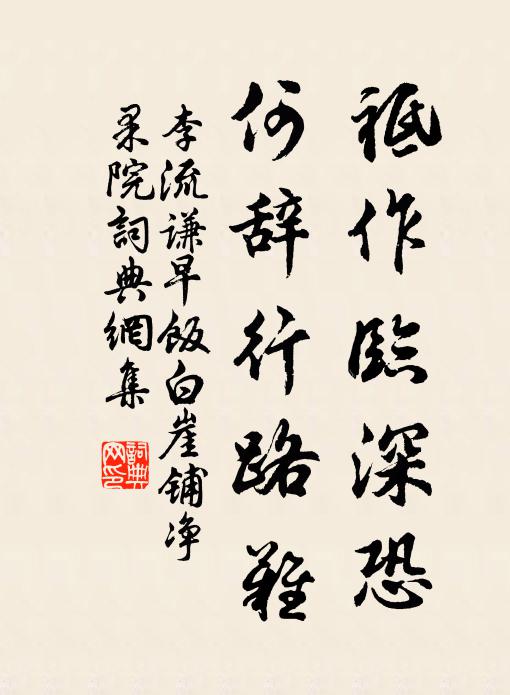 祗作临深恐
何辞行路难
李流谦早飯白崖铺净
果院詞典網集
詞典网印